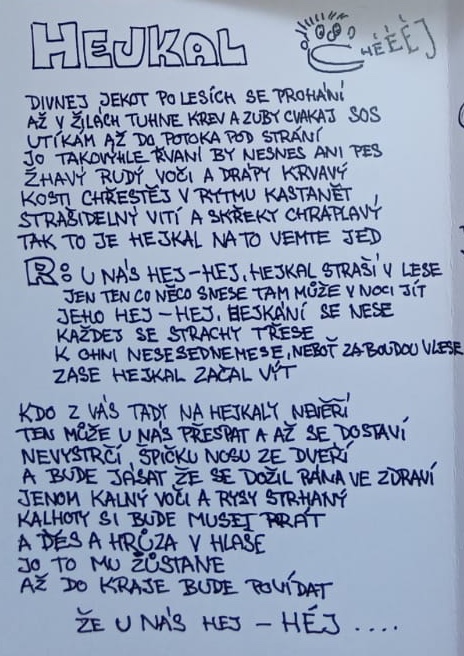 HEJKAL
HÉÉÉJ
DIVNEJ JEKOT PO LESÍCH SE PROHÁNÍ
AŽ V ŽILÁCH TUHNE KREV A ZUBY CVAKAJ SOS
UTÍKÁM AŽ DO POTOKA POD STRÁNÍ
JO TAKOVÝHLE ŘVANÍ BY NESNES ANI PES
ŽHAVÝ RUDÝ VOČI A DRÁPY KRVAVÝ
KOSTI CHŘESTĚJ V RYTMU KASTANĚT
STRAŠIDELNÝ VITÍ A SKŘEKY CHRAPLAVÝ
TAK TO JE HEJKAL NA TO VEMTE JED
R: U NÁS HEJ-HEJ, HEJKAL STRAŠÍ V LESE
JEN TEN CO NĚCO SNESE TAM MŮŽE V NOCI JÍT
JEHO HEJ-HEJ, HEJKÁNÍ SE NESE
KAŽDEJ SE STRACHY TŘESE
K OHNI NESESEDNEMESE, NEBOŤ ZABOUDOU VLESE
ZASE HEJKAL ZAČAL VÍT
KDO Z VÁS TADY NA HEJKALY NEVĚŘÍ
TEN MŮŽE U NÁS PŘESPAT A AŽ SE DOSTAVÍ
NEVYSTRČÍ ŠPIČKU NOSU ZE DVEŘÍ
A BUDE JÁSAT ŽE SE DOŽIL RÁNA VE ZDRAVÍ
JENOM KALNÝ VOČI A RYSY STRHANÝ
KALHOTY SI BUDE MUSET PRÁT
A DĚS A HRŮZA V HLASE
JO TO MU ZŮSTANE
AŽ DO KRAJE BUDE POVÍDAT
ŽE U NÁS HEJ - HÉJ ....